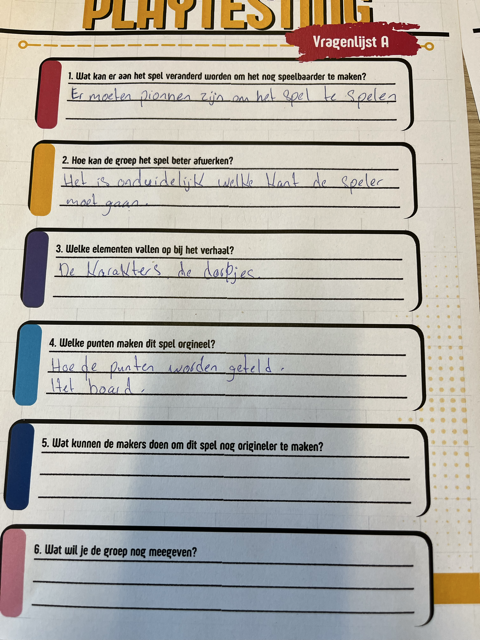 PLAYTESTING
Vragenlijst A
1. Wat kan er aan het spel veranderd worden om het nog speelbaarder te maken?
Er moeten pionnen zijn om het spel te spelen
2. Hoe kan de groep het spel beter afwerken?
Het is onduidelijk welke kant de speler
moet gaan.
3. Welke elementen vallen op bij het verhaal?
De karakters, de dorpjes.
4. Welke punten maken dit spel orgineel?
Hoe de punten worden geteld.
Het board.
5. Wat kunnen de makers doen om dit spel nog origineler te maken?
6. Wat wil je de groep nog meegeven?